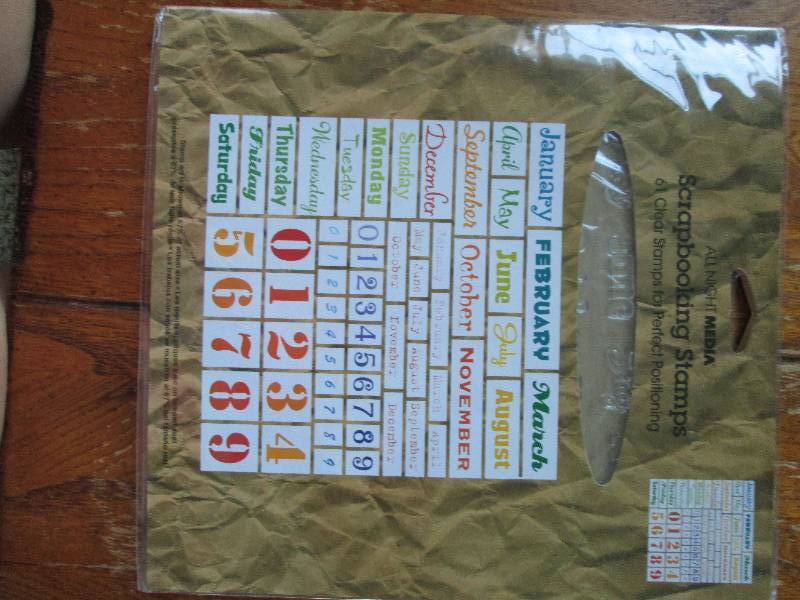 ALL NIGHT MEDIA
Scrapbooking Stamps
61 Clear Stamps for Perfect Positioning
January FEBRUARY March
April May June July August
September October NOVEMBER
December
January February March April
Sunday
May June July August September
Monday
October November December
Tuesday
0 1 2 3 4 5 6 7 8 9
Wednesday
0 1 2 3 4 5 6 7 8 9
Thursday
0 1 2 3 4
Friday
Saturday
5 6 7 8 9